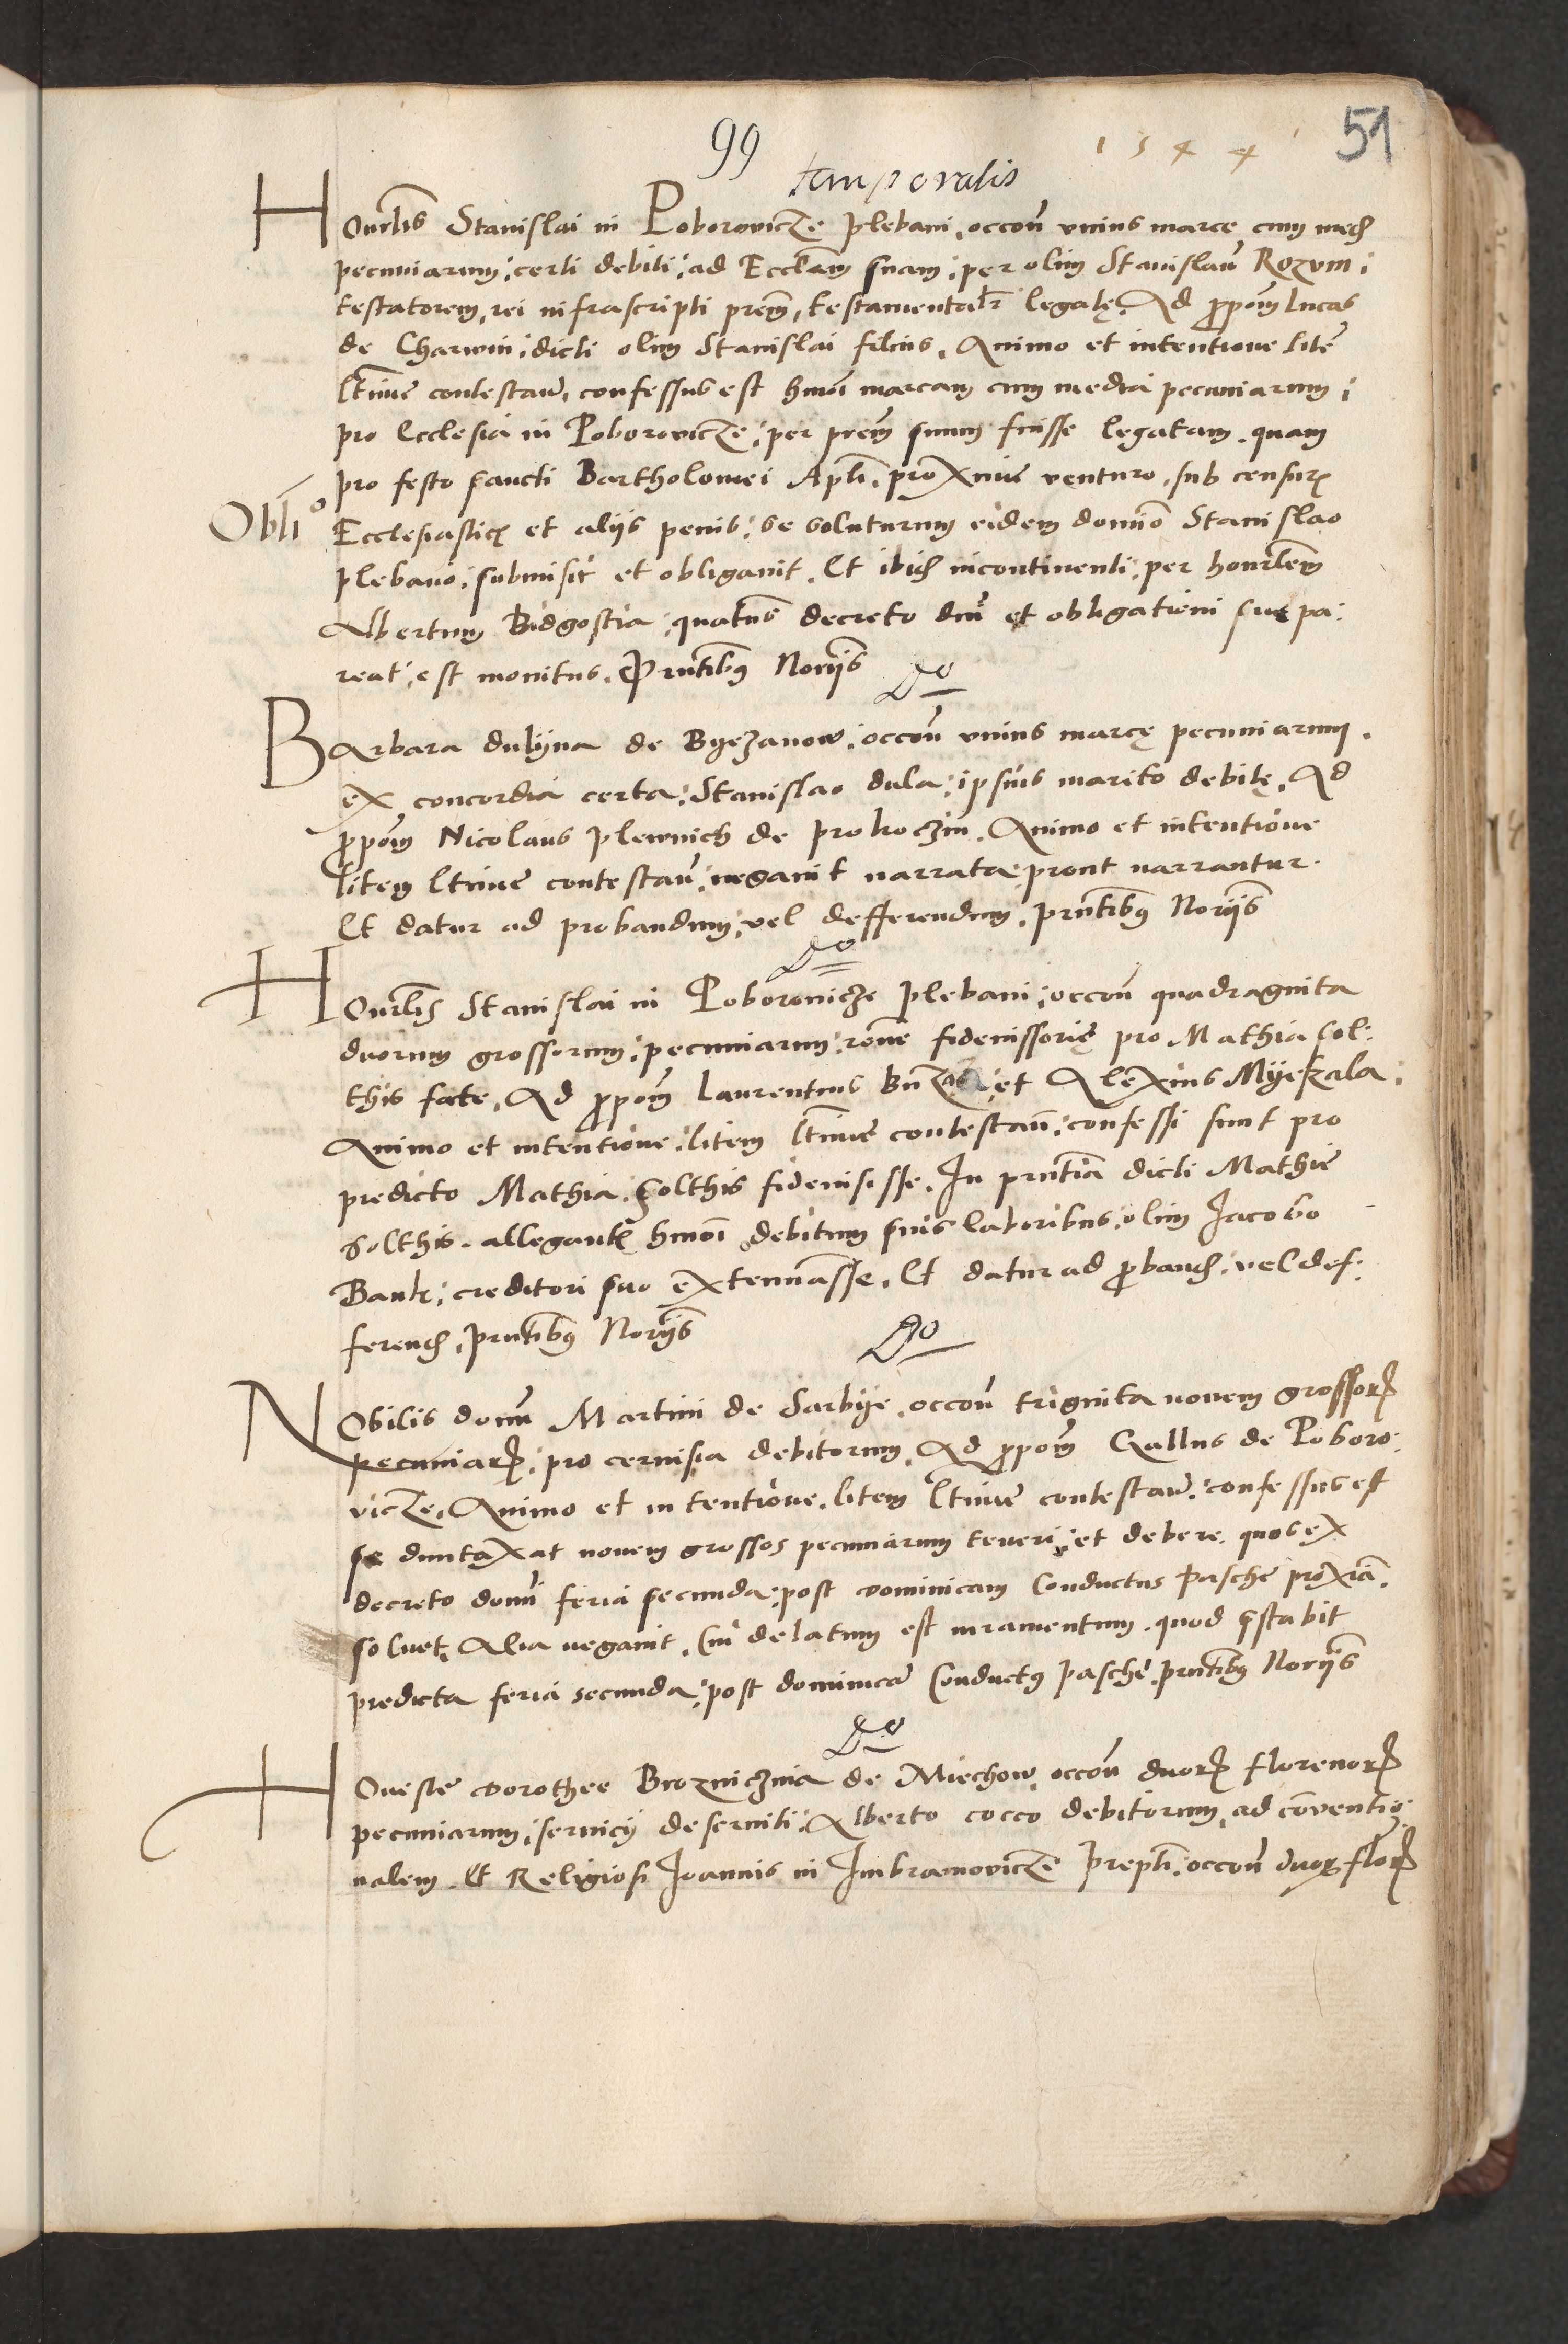 99 1544 51
temporalis
Honorlis Stanislai in Poborovicze plebani, occoñ vnius marcę cum med
pecuniarum, certi debiti, ad Eccl̃am suam, per olim Stanislaũ Rozum
testatorem, rei infrascripti prẽm, testamentalr legatę. Ad ppom̃ lucas
de Charwin, dicti olim Stanislai filius, Animo et intentione litẽ
ltime contestan̄, confessus est hmōi marcam cum media pecuniarum
pro Ecclesia in Poborovicze, per prẽm suum fuisse legatam. quam
pro festo sancti Bartholomei Apli, proxime venturo, sub censuris
Obli°
Ecclesiasticis et aliis penis, se soluturum eidem domino Stanislao
plebano, submisit et obligavit. Et ibid incontinenti, per honorlem
Albertum Bidgostia, quatnus decreto dni et obligationi sue pa:
reat, est monitus. Pntibus Noriis
Do
Barbara dulyna de Byezanow, occoñ vnius marcę pecuniarum,
ex concordia certa, Stanislao dula, ipsius marito debitę, Ad
ppom̃ Nicolaus plewnich de prokoczin, Animo et intentione
litem ltime contestan̄, negavit narrata, prout narrantur.
Et datur ad probandum, vel defferendum, pntibus Noriis
Do
Honorlis Stanislai in Poborovicze plebani, occoñ quadraginta
duorum grossorum, pecuniarum, rõne fideiussorię pro Mathia Sol:
this facte, Ad ppom̃ laurentius et Alexius Myekala,
Animo et intentione, litem ltime contestan̄, confessi sunt pro
predicto Mathia Solthis fideiusisse. In pntia dicti Mathie
Solthis, allegantis hmōi debitum suis laboribus, olim Jacobo
Bank, creditori suo extenuasse. Et datur ad pband, vel def:
ferend, pntibus Noriis
Do
Nobilis domi Martini de Sarbye, occoñ triginta novem grossor
pecuniar, pro cervisia debitorum, Ad ppom̃ Gallus de Poboro:
vicze, Animo et intentione, litem ltime contestan̄, confessus est
se duntaxat novem grossos pecuniarum teneri, et debere. quos ex
decreto domi feria secunda, post dominicam Conductus Pasche proxia,
solvet. Alia negavit. Cui delatum est iuramentum. quod pstabit
predicta feria secunda, post dominica Conductus pasche, pntibus Noriis
Do
Honeste dorothee Broznicznia de Miechow, occoñ duor florenor
pecuniarum, servicij deserviti, Alberto cocco debitorum, ad conventio:
nalem. Et Religiosi Joannis in Imbramovicze prepti, occoñ duor flor